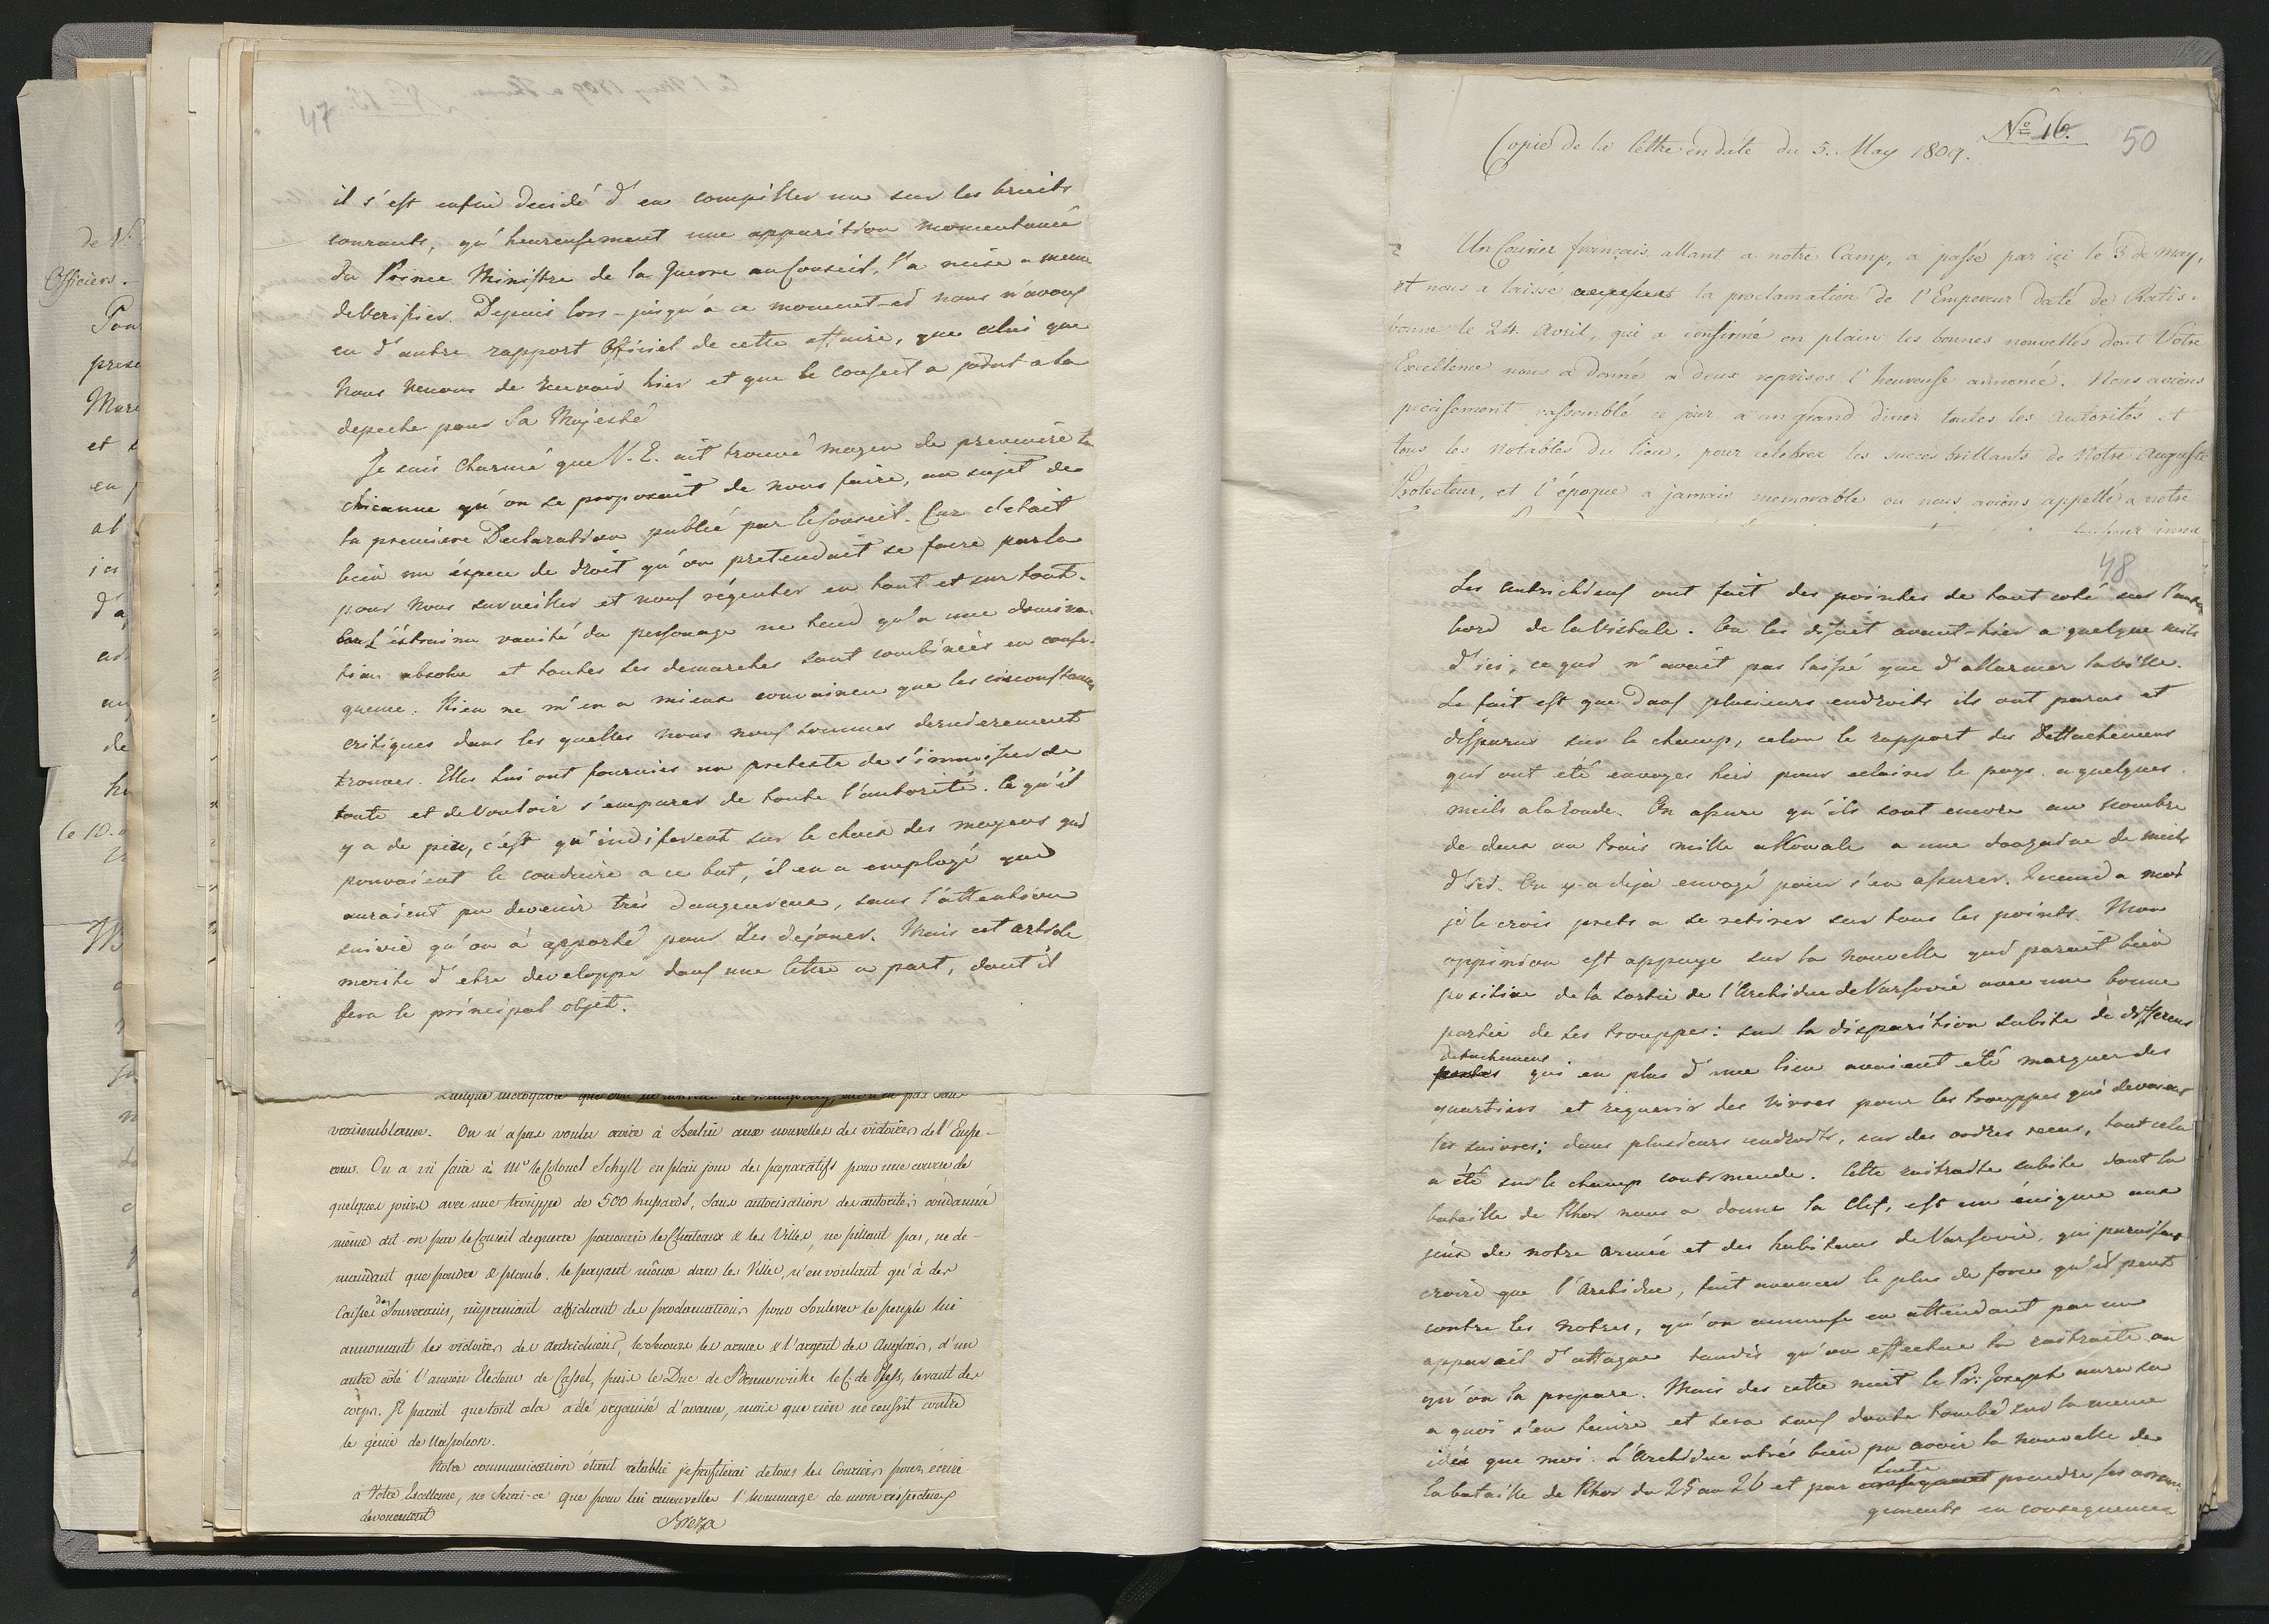 47
il s'est enfin decidé d'en compiller un sur les bruits
courants, qu'heureusement une apparition momentanée
du Prince Ministre de la Guerre au Conseil, l'a mise a meme
de verifier. Depuis lors-jusqu'à ce moment-ci nous n'avons
eu d'autre rapport Officiel de cette affaire, que celui que
nous venons de recevoir hier et que le conseil a joint a la
depeche pour Sa Majesté
Je suis charmé que V. E. ait trouvé moyen de prevenir la
chicanne qu'on se proposait de nous faire, au sujet de
la premiere Declaration publiée par le Conseil. Car c'etait
bien un éspece de droit qu'on pretendait se faire par la
pour nous surveiller et nous régenter en tout et sur tout.
L'éxtreme vanité du personage ne tend qu'a une domina-
tion absolue et toutes ses demarches sont combinées en conse-
quence. Rien ne m'en a mieux convaincu que les circonstances
critiques dans les quelles nous nous sommes dernierement
trouves. Elles lui ont fournies un pretexte de s'immiscer de
toute et de vouloir s'emparer de toute l'autorité. Ce qu'il
y a de pire, c'est qu'indiferent sur le choix des moyens qui
pouvaient le conduire a ce but, il en a employé qui
auraient pu devenir très dangereux, sans l'attention
suivie qu'on a apporté pour les dejouer. Mais cet article
merite d'etre developpe dans une lettre a part, dont il
fera le principal objet.
vraisemblance. On n'a pas voulu croire à Berlin aux nouvelles des victoires de l'Empe-
reur. On a vu faire à Mr le Colonel Schyll en plein jour des preparatifs pour une course de
quelques jours avec une trouppe de 500 husards, sans autorisation des autorités, condamné
même dit-on par le Conseil de guerre parcourir les Chateaux & les Villes, ne pillant pas, ne de-
mandant que poudre & plomb, le payant même dans les Villes, n'en voulant qu'à des
Caisses des Souverains, imprimant affichant des proclamations pour soulever le peuple lui
annonçant les victoires des Autrichiens, le secours les armes & l'argent des Anglais, d'un
autre côté l'ancien Electeur de Cassel, puis le Duc de Brunswick le C. de Pless, levant des
corps. Il parait que tout cela a été organisé d'avance, mais que rien ne reussit contre
le génie de Napoleon.
Notre communication étant retablie je profiterai de tous les Couriers pour écrire
a Votre Excellence, ne serai-ce que pour lui renouveller l'hommage de mon respectueux
devouement
Breza
No 16.
50
Copie de la lettre en date du 5. May 1809.
Un Courier français allant a notre Camp, a passé par içi le 3 de may,
et nous a laissé la proclamation de l'Empereur daté de Ratis-
bonne le 24. Avril, qui a confirmé en plain les bonnes nouvelles dont Votre
Excellence nous a donné a deux reprises l'heureuse annonce. Nous avions
precisement rassemblé ce jour a un grand diner toutes les autorités et
tous les Notables du lieu, pour celebrer les succes brillants de Notre Auguste
Protecteur, et l'époque a jamais memorable ou nous avions appellé a notre
48
Les autrichiens ont fait des pointes de tout coté sur l'autre
bord de la Vistule. On les disait avant-hier a quelque mils
d'ici, ce qui n'avait pas laissé que d'allarmer la ville.
Le fait est que dans plusieurs endroits ils ont parus et
disparus sur le champ, celon le rapport des Dettachemens
qui ont été envoyes hier pour eclairer le pays a quelques
meils a la ronde. On assure qu'ils sont encore au nombre
de deux ou trois mille a Kowale a une douzaine de meils
d'ici. On y-a deja envoyé pour s'en assurer. Quand a moi
je le crois prets a se retirer sur tous les points. Mon
oppinion est appuye sur la nouvelle qui parait bien
positive de la sortie de l'Archiduc de Varsovie avec une bonne
partie de ses trouppes: sur la disparition subite de differens
detachemens qui en plus d'une lieu avaient été marquer des
quartiers et requerir des vivres pour les trouppes qui devaient
les suivre; dans plusieurs endroits, sur des ordres recus, tout cela
a été sur le champ contremende. Cette rettraite subite dont la
bataille de Rhor nous a donne la Clef, est un énigme aux
yeux de notre armée et des habitans de Varsovie, qui paraissent
croire que l'Archiduc, fait avancer le plus de force qu'il peut
contre les notres, qu'on ammuse en attendant par un
appareil d'attaque tandis qu'on effectue la rettraite ou
qu'on la prepare. Mais des cette nuit le Pr: Joseph aura su
a quoi s'en tenire et sera sans doute tombé sur la meme
idée que moi. L'Archiduc a très bien pu avoir la nouvelle de
la bataille de Rhor du 25 au 26 et par suite prendre ses arran-
gements en consequence